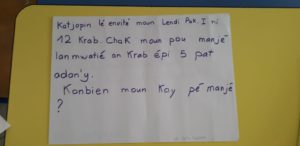 Katjopin lé envité moun Lendi Pak. I ni
12 Krab. Chak moun pou manjé
lanmwatié an Krab épi 5 pat
adan'y.
Konbien moun Kay pé manjé
?